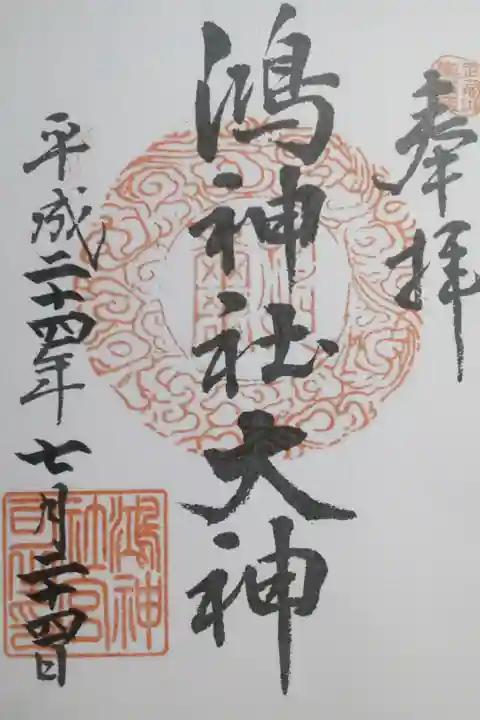 奉拝
鴻神社大神
平成二十四年七月二十四日
鴻神
社宮
司印